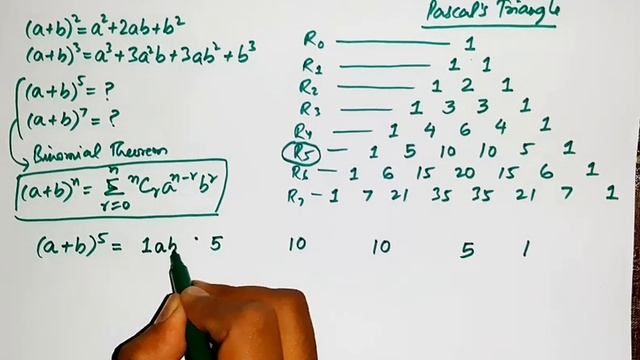 (a+b)² = a² + 2ab + b²
(a+b)³ = a³ + 3a²b + 3ab² + b³
(a+b)⁵ = ?
(a+b)⁷ = ?
Binomial Theorem
(a+b)ⁿ = ∑ⁿᵣ₌₀ ⁿCᵣ aⁿ⁻ʳ bʳ
Pascal's Triangle
R₀ 1
R₁ 1 1
R₂ 1 2 1
R₃ 1 3 3 1
R₄ 1 4 6 4 1
R₅ 1 5 10 10 5 1
R₆ 1 6 15 20 15 6 1
R₇ 1 7 21 35 35 21 7 1
(a+b)⁵ = 1ab 5 10 10 5 1